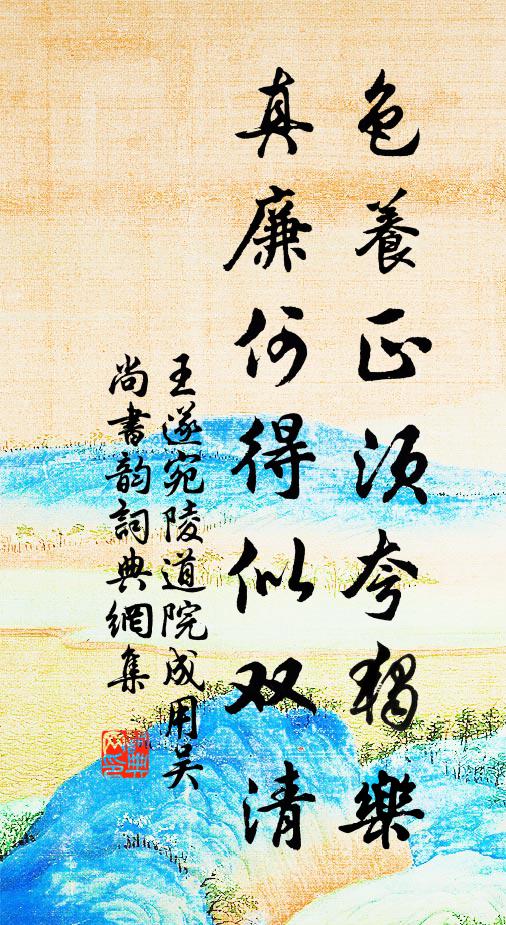 色養正須夸獨樂
真廉何得似双清
王遂宛陵道院成用吴
尚書韵詞典網集